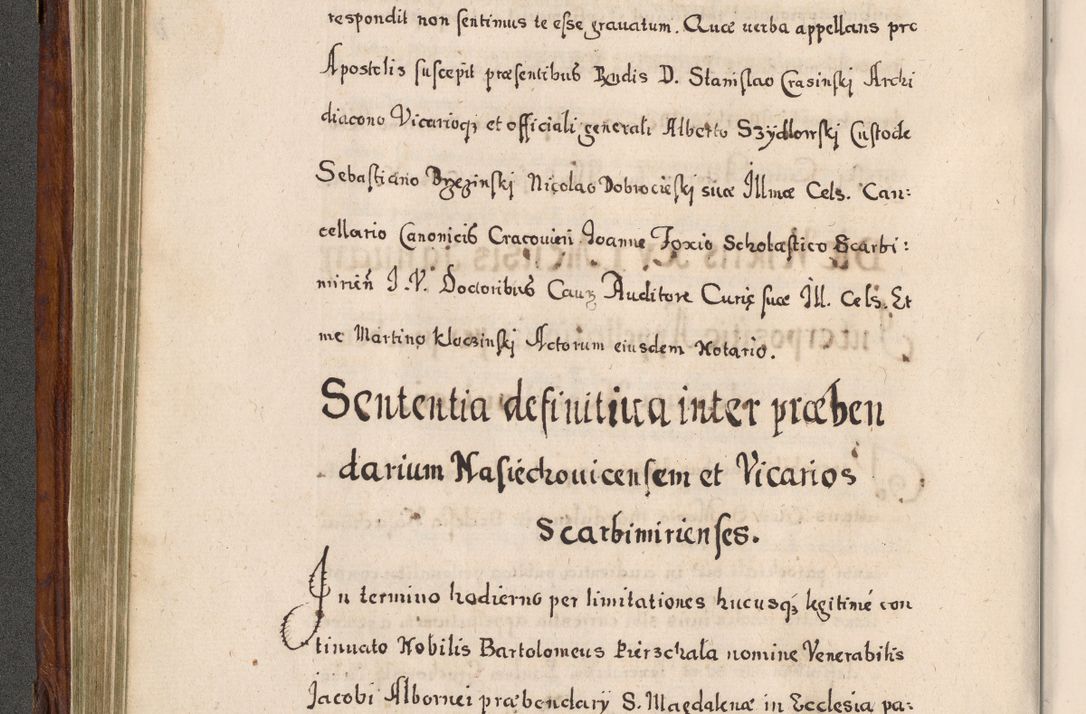 respondit non sentimus te esse grauatum. Quæ uerba appellans pro
Apostolis suscepit præsentibus Rndis D. Stanislao Crasinski Archi
diacono Vicarioq; et officiali generali Alberto Szydlowski Custode
Sebastiano Brzezinski Nicolao Dobrocieski suæ Illmæ Cels. Can:
cellario Canonicis Cracouień Ioanne Foxio Scholastico Scarbi:
mirień I. V. Doctoribus Cauz Auditore Curię suæ Ill. Cels. Et
me Martino Kloczinski Actorum eiusdem Notario.
Sententia definitiua inter præben
darium Nasiechouicensem et Vicarios
Scarbimirienses.
In termino hodierno per limitationes hucusq; legitimé con
tinuato Nobilis Bartolomeus Pierzchala nomine Venerabilis
Jacobi Albornei præbendarij S. Magdalenæ in Ecclesia pa: